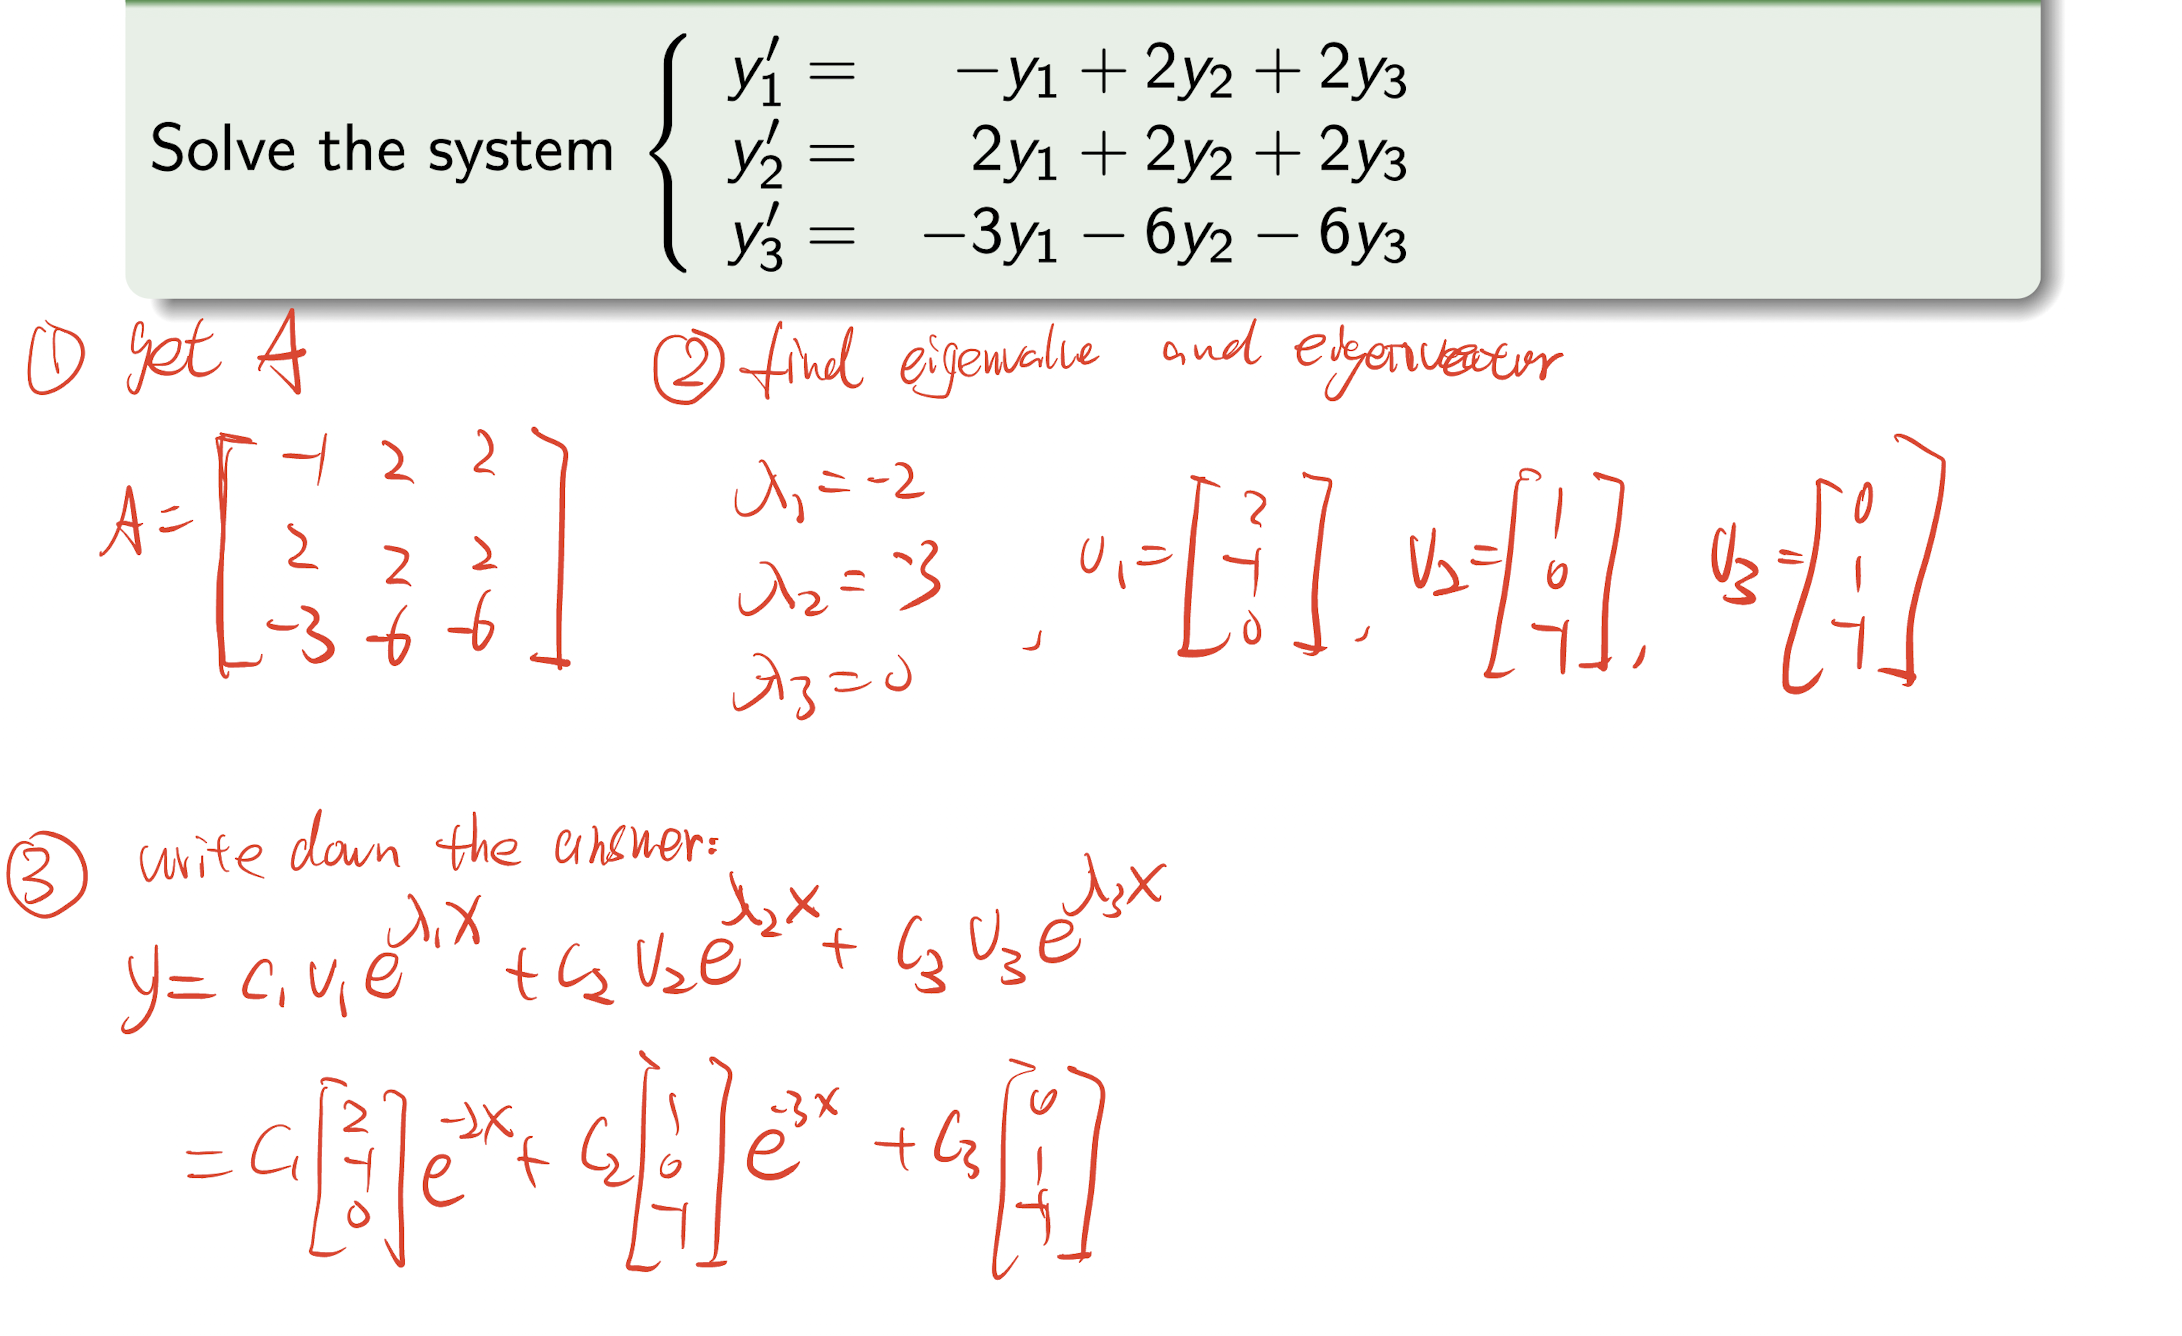 Solve the system { y₁′ = −y₁ + 2y₂ + 2y₃
y₂′ = 2y₁ + 2y₂ + 2y₃
y₃′ = −3y₁ − 6y₂ − 6y₃
① get A
A = [ -1 2 2
2 2 2
-3 -6 -6 ]
② find eigenvalue and eigenvector
λ₁ = -2
λ₂ = -3
λ₃ = 0
, v₁ = [ 2 -1 0 ], v₂ = [ 1 0 -1 ], v₃ = [ 0 1 -1 ]
③ write down the answer:
y = c₁ v₁ e^{λ₁x} + c₂ v₂ e^{λ₂x} + c₃ v₃ e^{λ₃x}
= c₁ [ 2 -1 0 ] e^{-2x} + c₂ [ 1 0 -1 ] e^{-3x} + c₃ [ 0 1 -1 ]